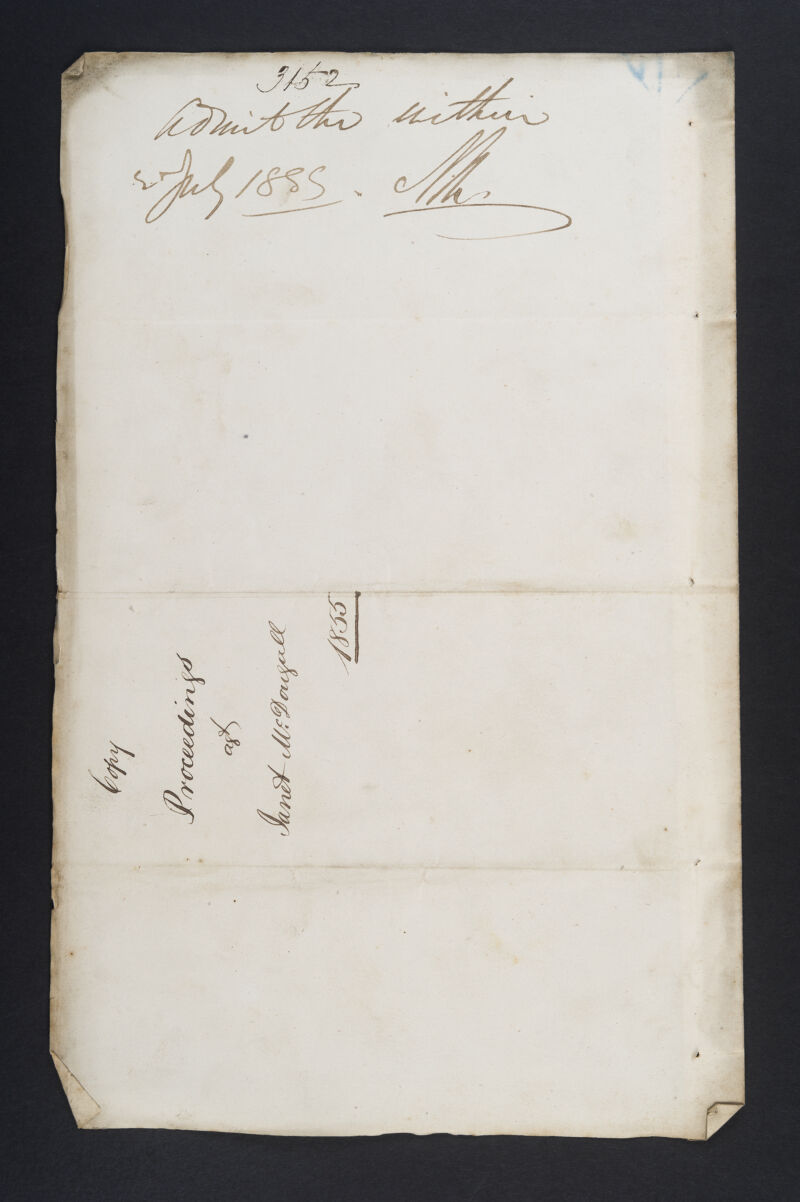 3152
Admit the within
2 July 1885.
Copy
Proceedings
agt
Janet McDougall
1855